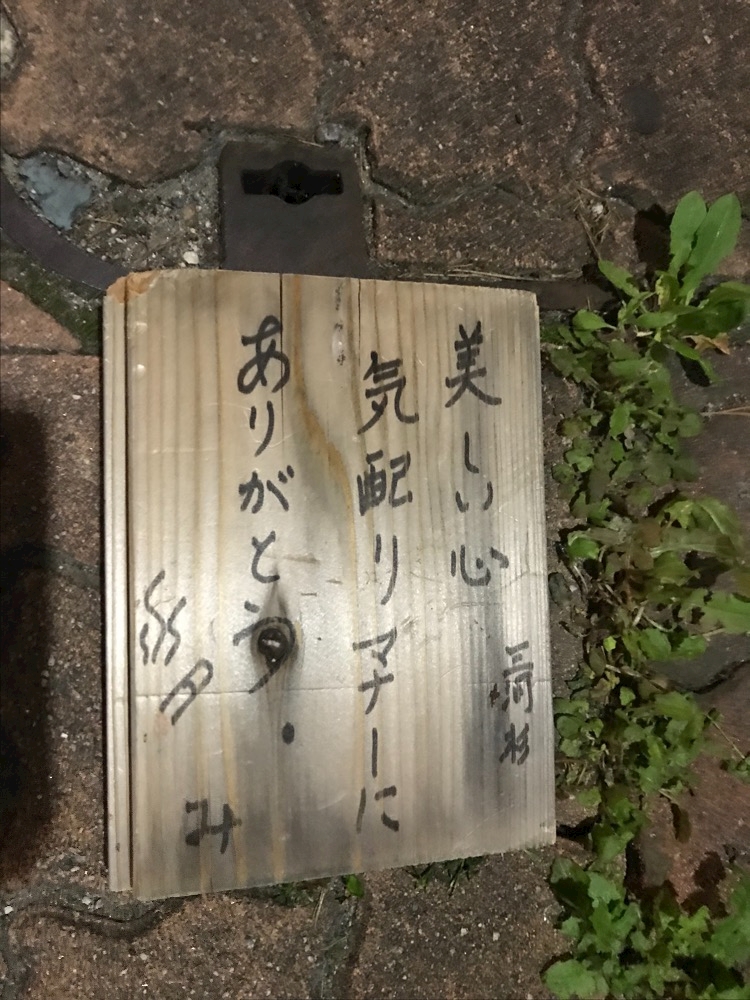 三河杉
美しい心
気配りマナーに
ありがとう.
み